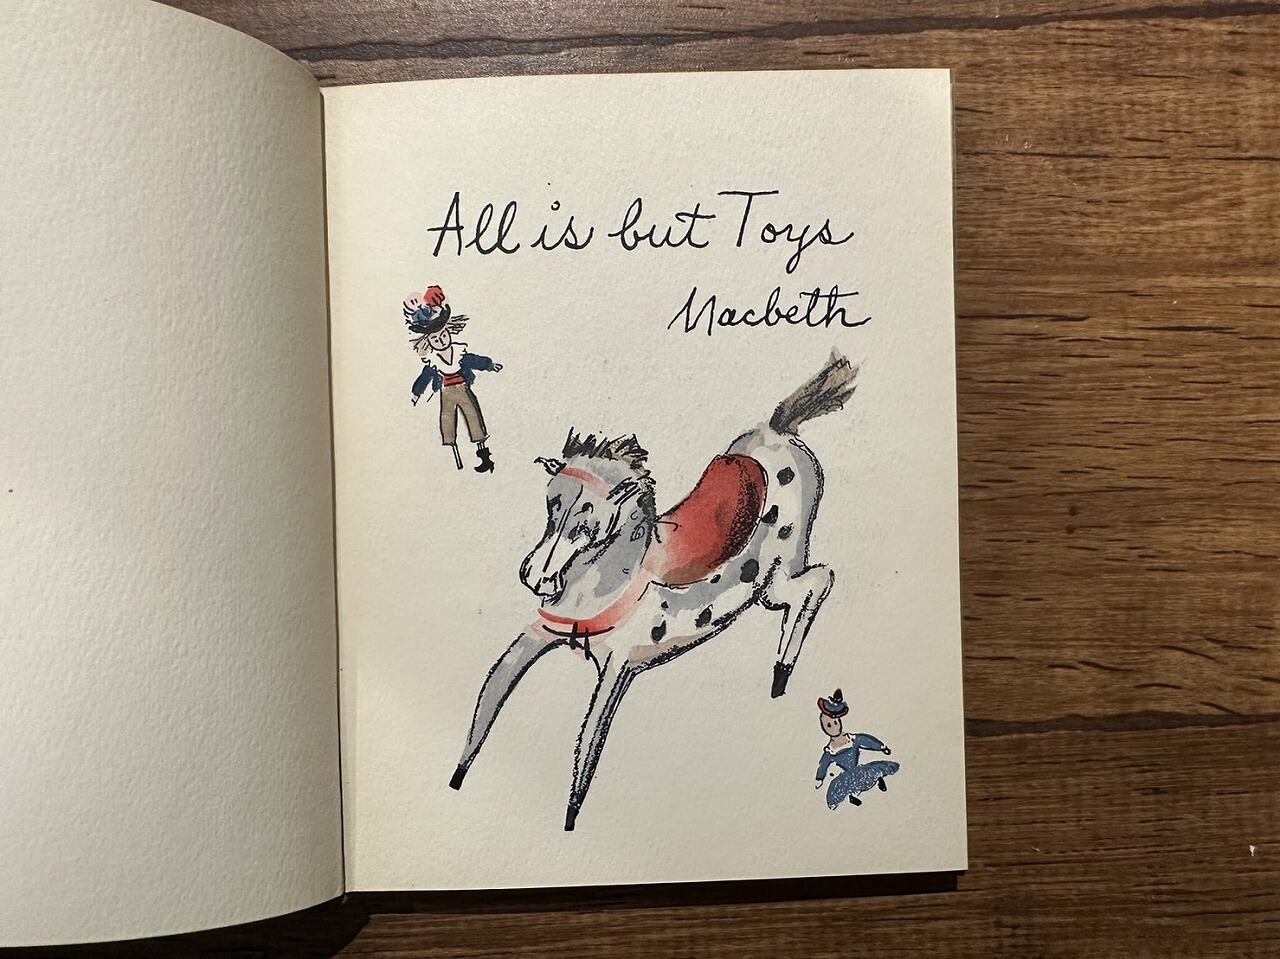 All is but Toys
Macbeth